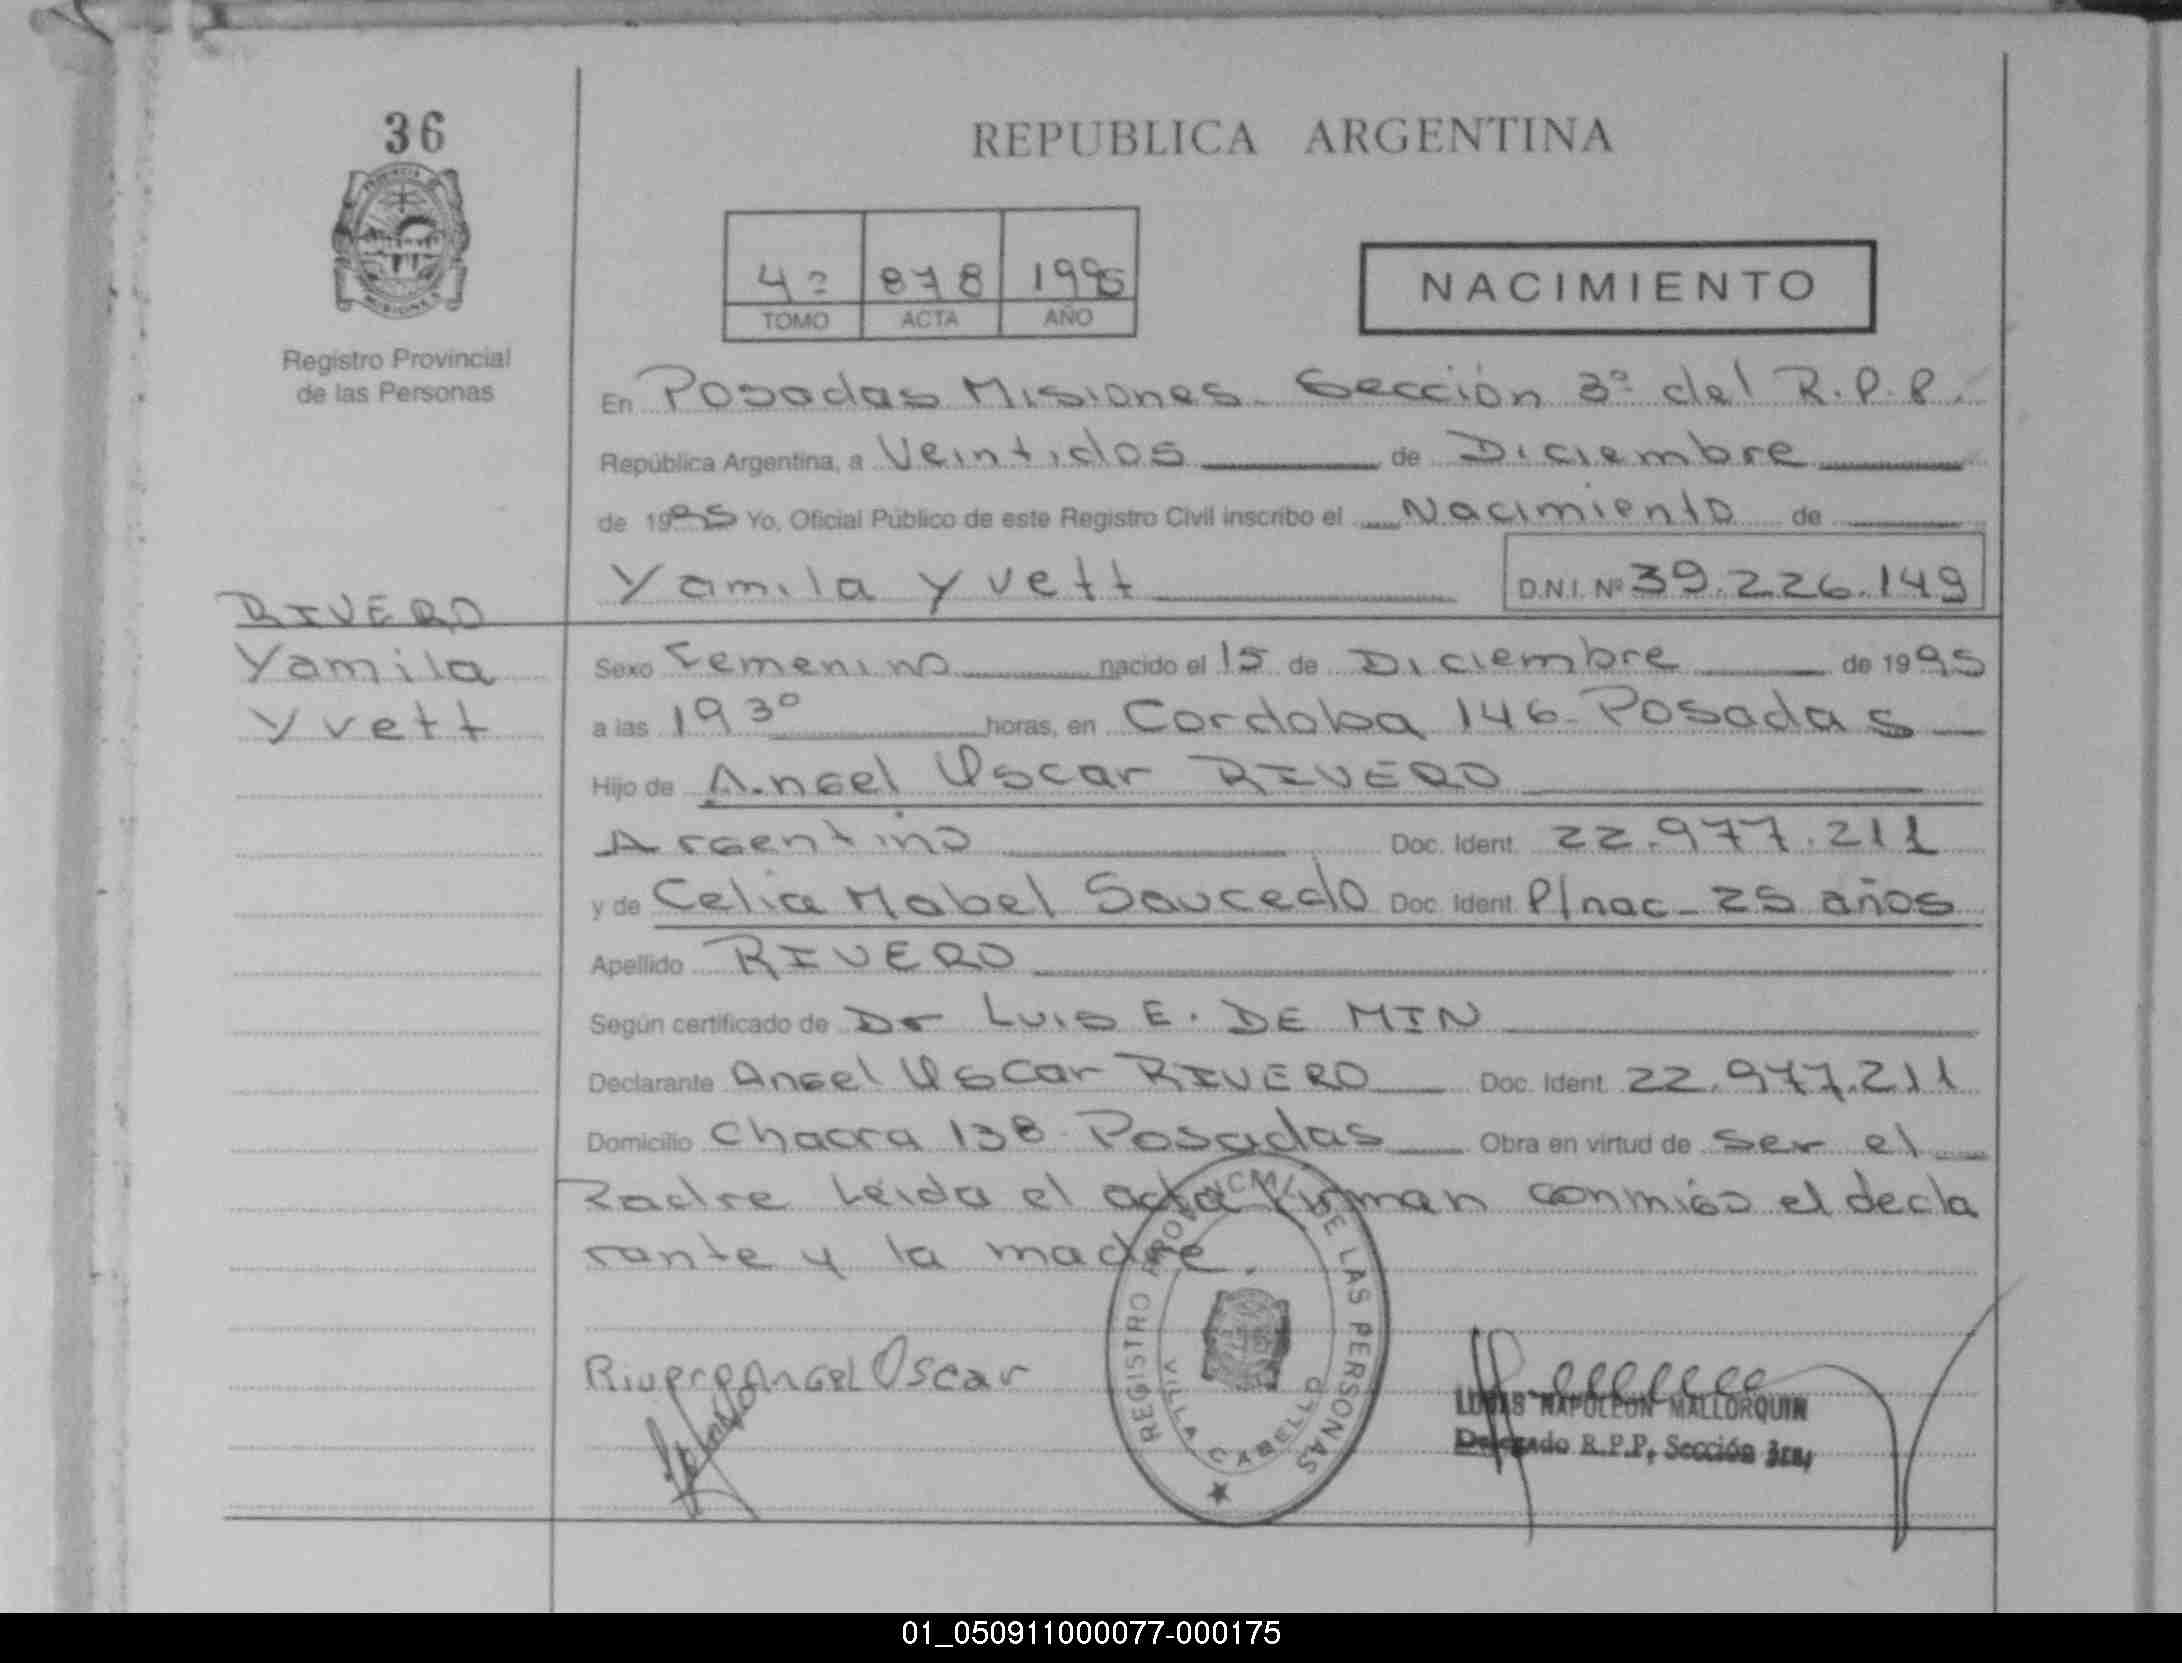 36
REPUBLICA ARGENTINA
4º 878 1995
TOMO ACTA AÑO
NACIMIENTO
Registro Provincial
de las Personas
En Posadas Misiones. Sección 3º del R.P.P.
República Argentina, a Veintidos de Diciembre
de 1995 Yo, Oficial Público de este Registro Civil inscribo el Nacimiento de
Yamila Yvett D.N.I. Nº 39.226.149
RIVERO
Yamila
Yvett
Sexo Femenino nacido el 15 de Diciembre de 1995
a las 19 30 horas, en Cordoba 146 - Posadas
Hijo de Angel Oscar RIVERO
Argentino Doc. Ident. 22.977.211
y de Celia Mabel Saucedo Doc. Ident. P/nac - 25 años
Apellido RIVERO
Según certificado de Dr Luis E. DE MIN
Declarante Angel Oscar RIVERO Doc. Ident. 22.977.211
Domicilio Chacra 138 - Posadas Obra en virtud de ser el
Padre Leida el acta firman conmigo el decla
rante y la madre.
REGISTRO PROVINCIAL DE LAS PERSONAS
VILLA CABELLO
Rivero Angel Oscar
LUCAS NAPOLEON MALLORQUIN
Delegado R.P.P. Sección 3ra.
01_050911000077-000175